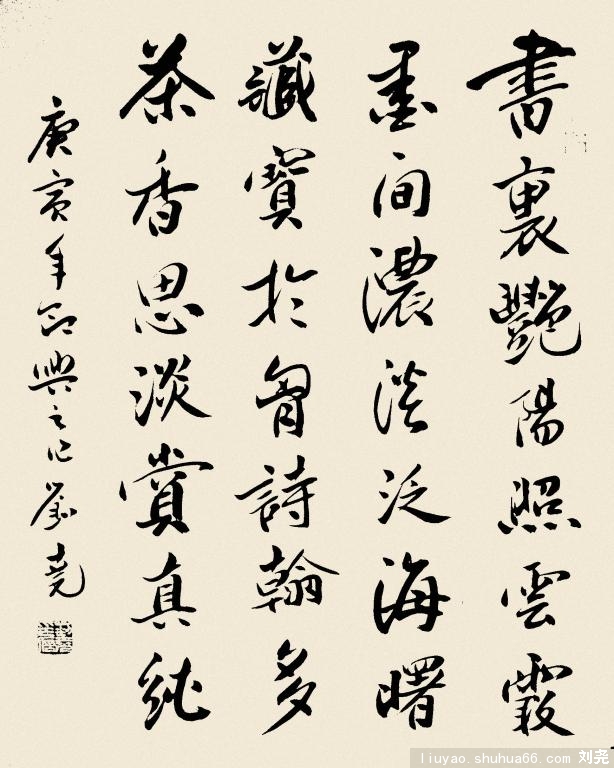 書裏艷陽照雲霞
墨間濃淡泛海曙
藏寶於胷詩翰多
茶香思淡賞真純
庚寅年即興之作劉堯
liuyao.shuhua66.com 刘尧